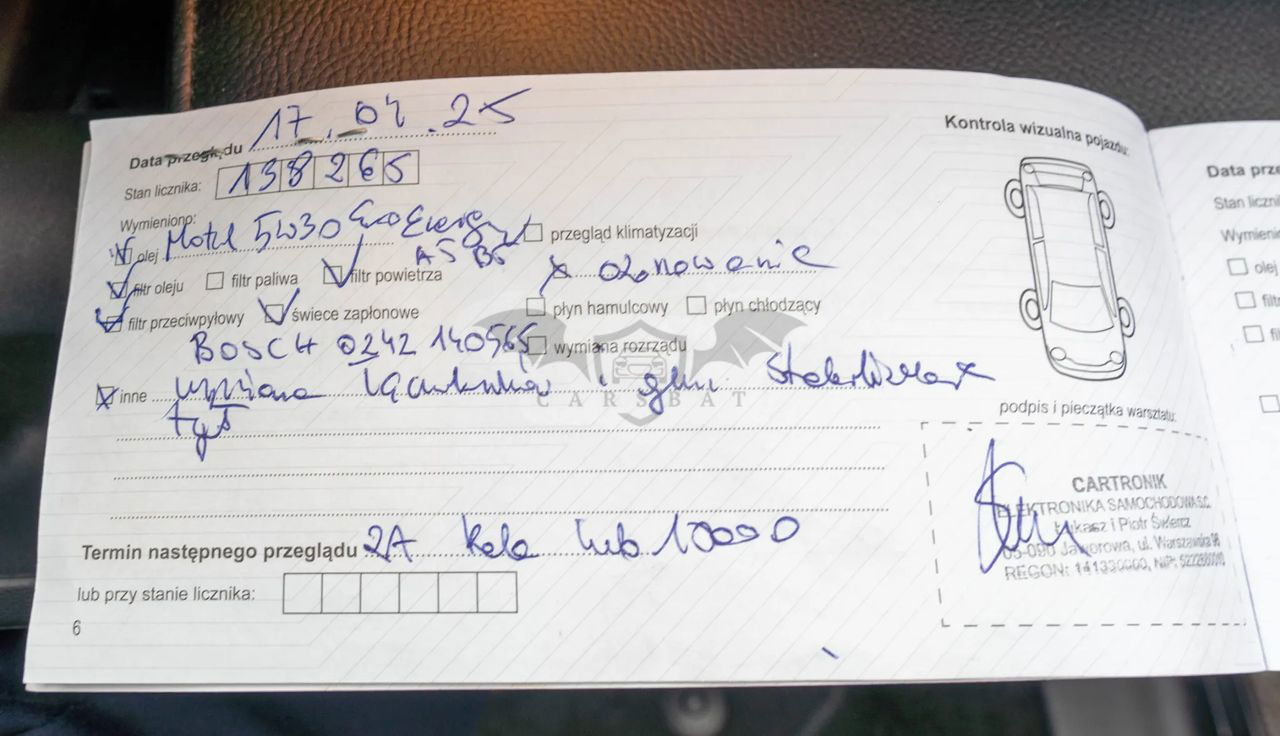 Data przeglądu 17.04.25
Stan licznika: 138265
Wymieniono:
olej Motul 5W30 EcoEnergy
A5 B5
przegląd klimatyzacji
filtr oleju filtr paliwa filtr powietrza
x ozonowanie
filtr przeciwpyłowy świece zapłonowe
płyn hamulcowy płyn chłodzący
BOSCH 0242 140565
wymiana rozrządu
inne wymiana łączników i gum stabilizatora
tył
CARSBAT
Termin następnego przeglądu lub 10000
lub przy stanie licznika:
6
Kontrola wizualna pojazdu:
podpis i pieczątka warsztatu:
CARTRONIK
ELEKTRONIKA SAMOCHODOWA S.C.
Łukasz i Piotr Świercz
05-090 Jaworowa, ul. Warszawska
REGON: NIP:
Data prze
Stan liczni
Wymienio
olej
filtr
filtr